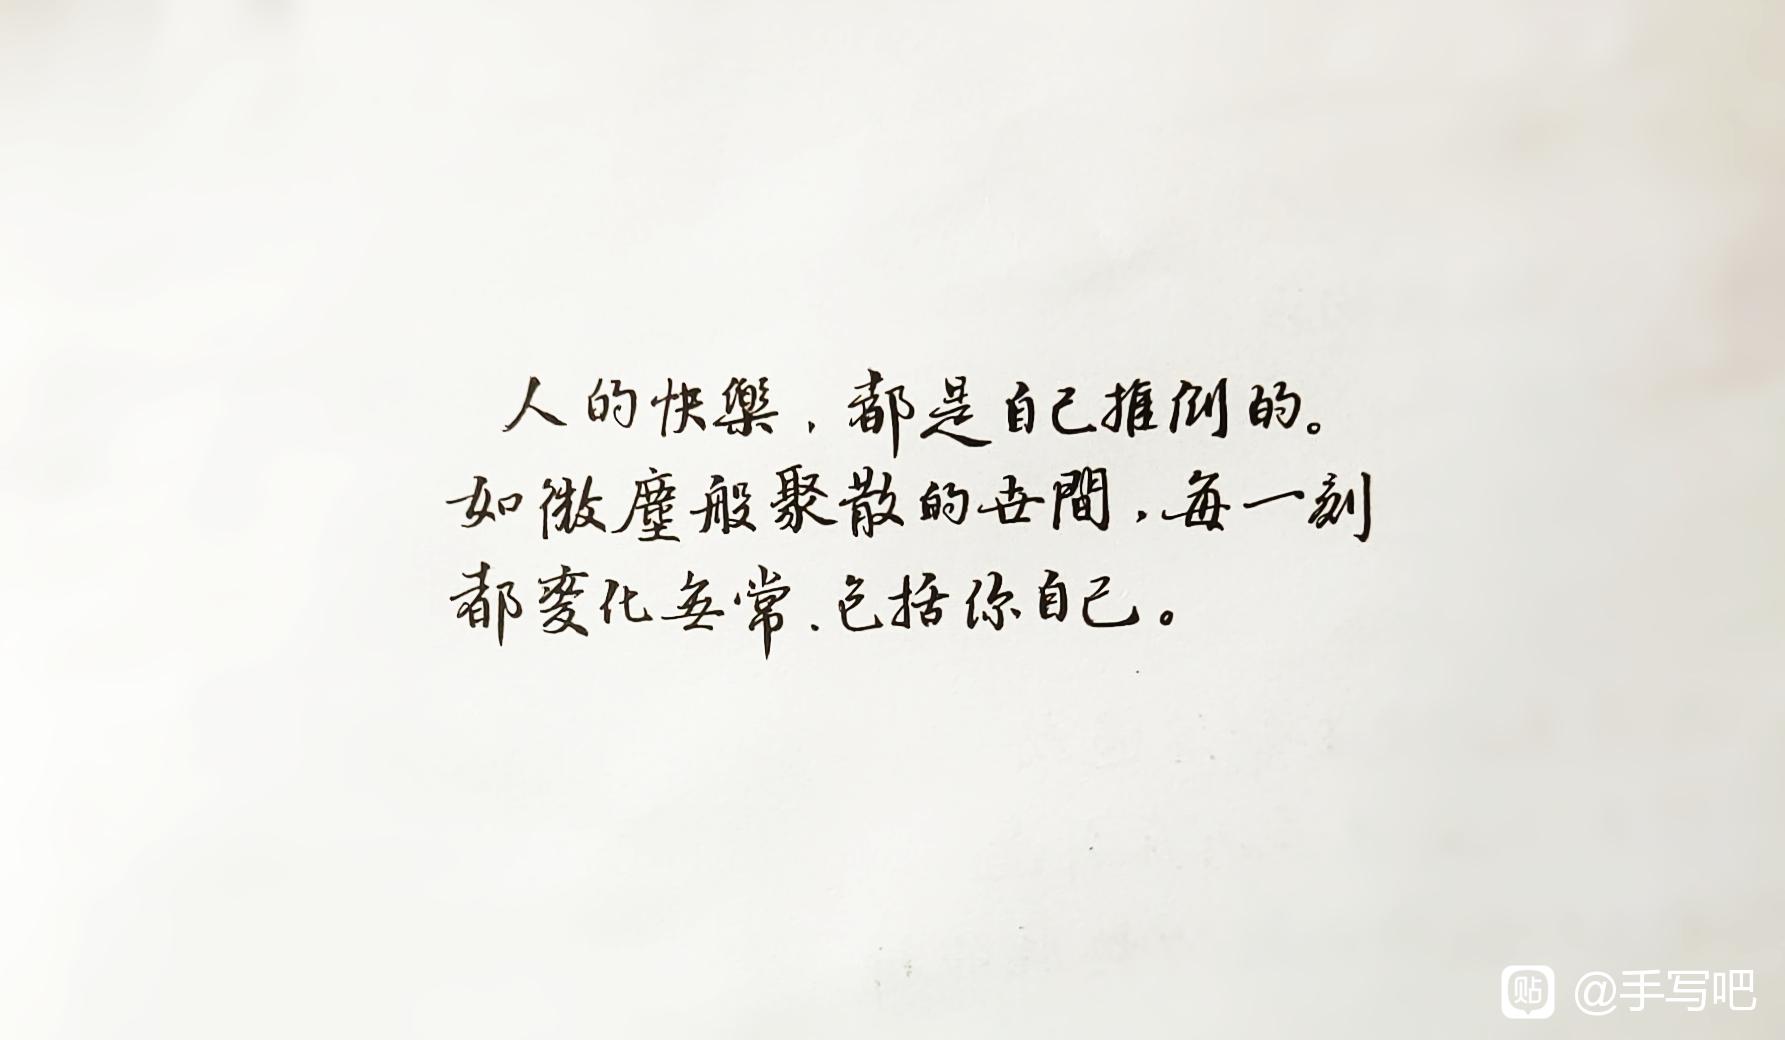 人的快樂，都是自己推倒的。
如微塵般聚散的世間，每一刻
都変化無常.包括你自己。
贴 @手写吧